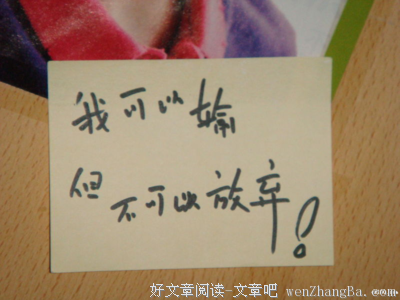 我可以输
但不可以放弃!
好文章阅读-文章吧 wenZhangBa.com